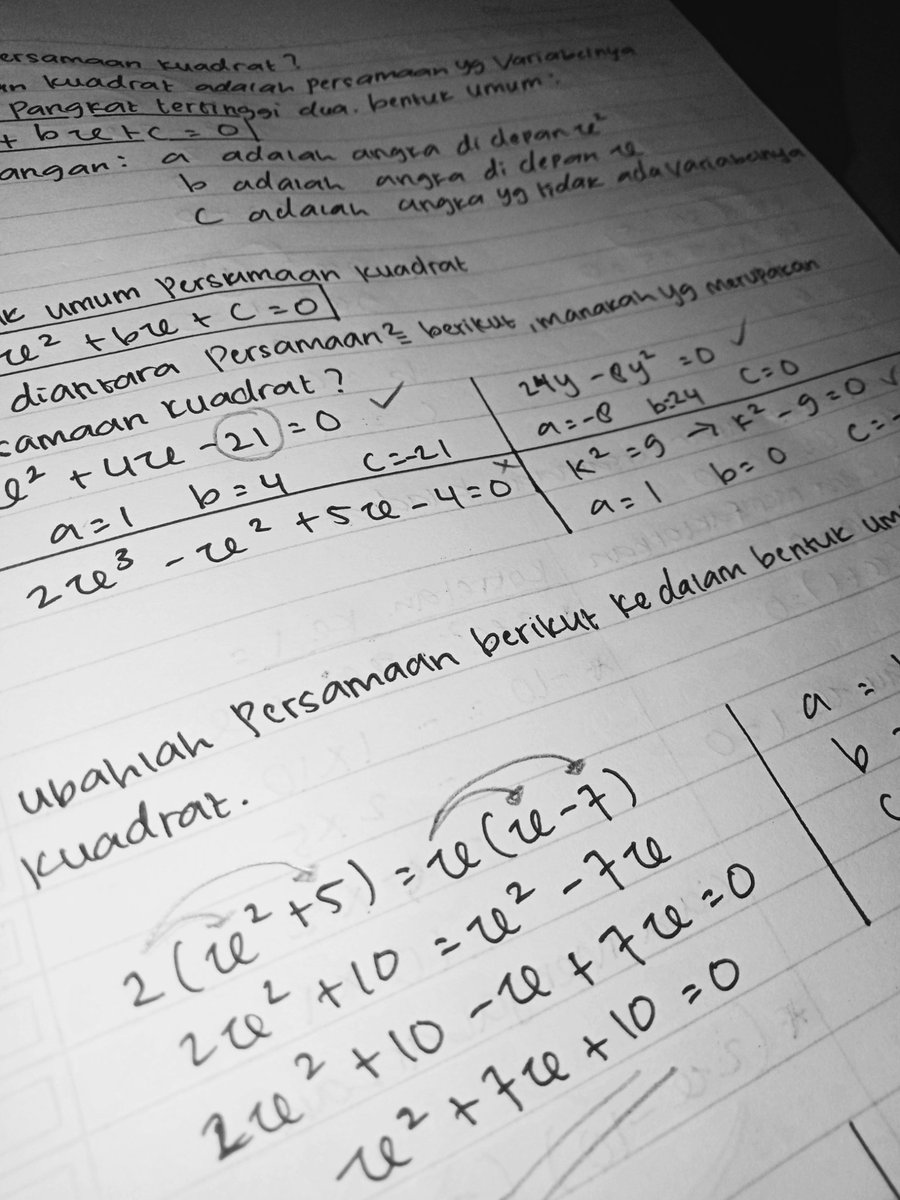 ersamaan kuadrat?
an kuadrat adalah persamaan yg Variabelnya
Pangkat tertinggi dua. bentuk umum:
+ bx + c = 0
angan: a adalah angka di depan x²
b adalah angka di depan x
c adalah angka yg tidak ada variabelnya
uk umum Persamaan kuadrat
x² + bx + c = 0
diantara Persamaan² berikut, manakah yg merupakan
samaan kuadrat?
x² + 4x - 21 = 0 ✓
a = 1 b = 4 c = -21
2x³ - x² + 5x - 4 = 0 x
24y - 8y² = 0 ✓
a = -8 b = 24 c = 0
k² = 9 → k² - 9 = 0 ✓
a = 1 b = 0 c = -
ubahlah Persamaan berikut ke dalam bentuk um
kuadrat.
2(x² + 5) = x(x - 7)
2x² + 10 = x² - 7x
2x² + 10 - x + 7x = 0
x² + 7x + 10 = 0
a =
b =
c